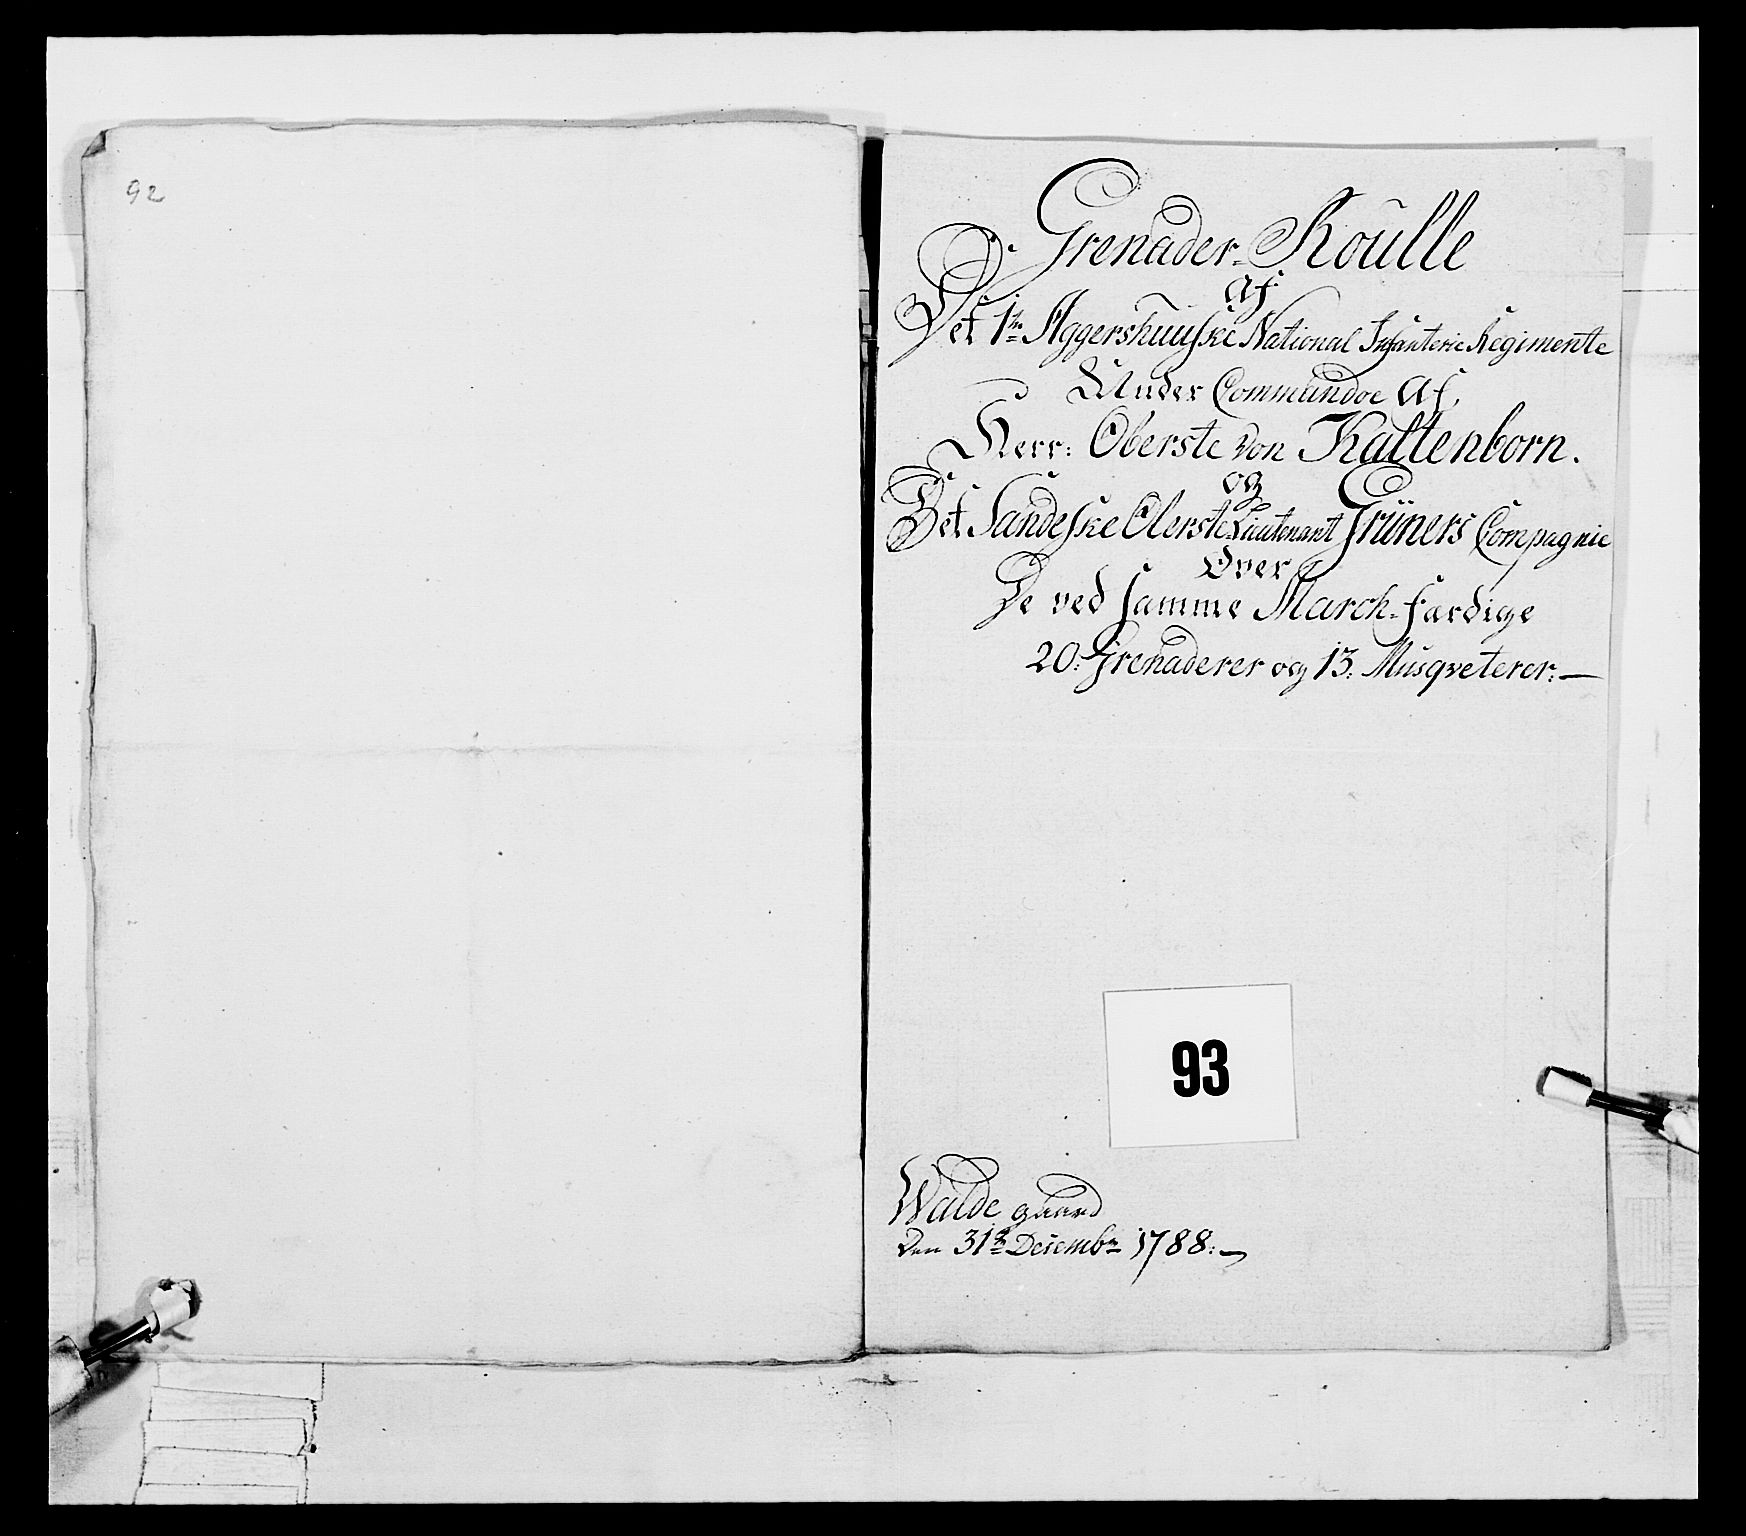 92
Grenader-Roulle
Af
Det 1te Aggershuuske National Infanterie Regimente
Under Commandoe Af
Herr: Oberste von Kaltenborn.
og
Det Sandeske Oberste Lieutenant Grüners Compagnie
Over
De ved samme March-færdige
20: Grenaderer og 13: Musqveterer:—
93
Walde gaard
Den 31te Decembr 1788:—